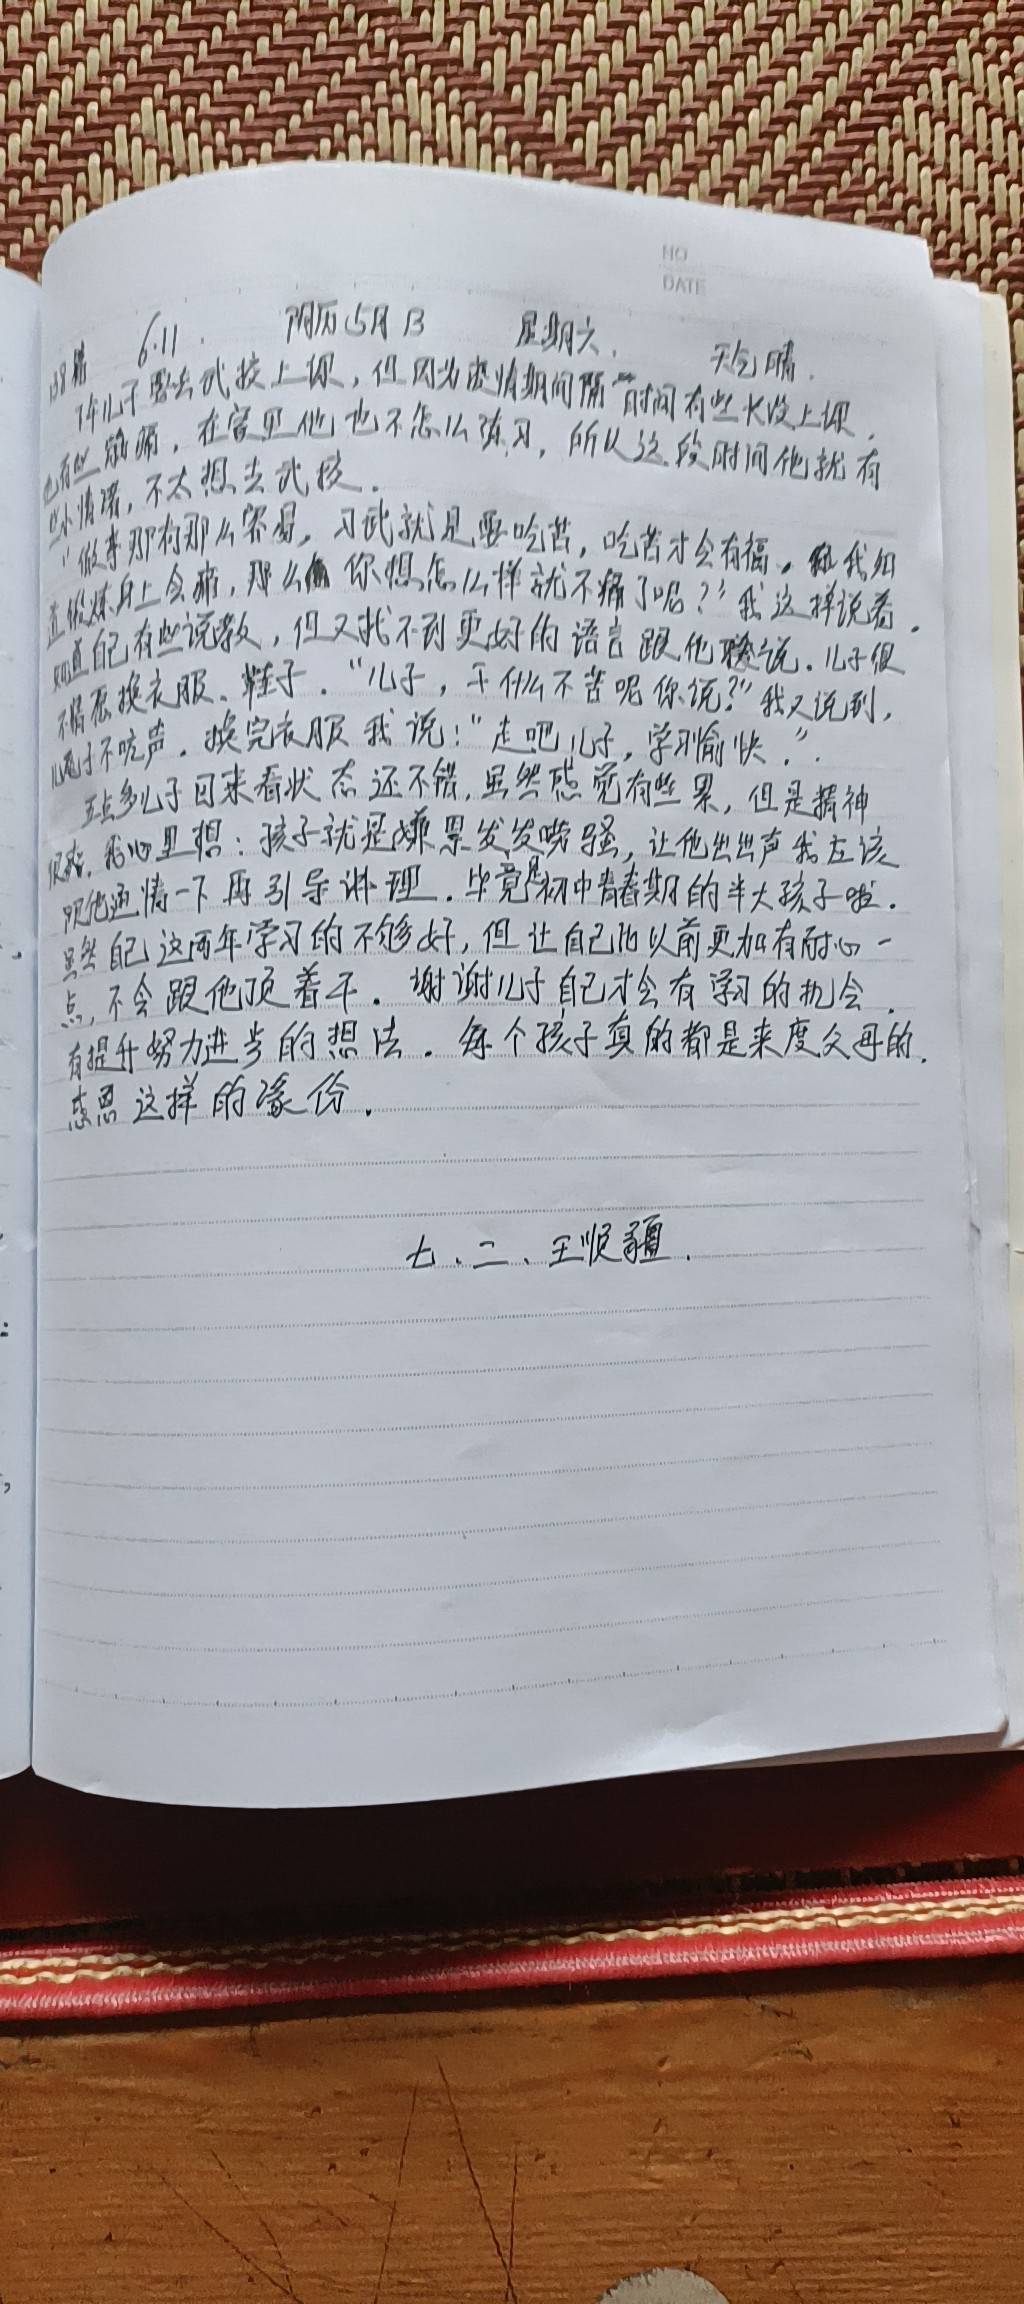 NO
DATE
138篇 6.11. 阴历5月13 星期六. 天气晴.
下午儿子要去武校上课，但因为疫情期间隔时间有些长没上课，
也有些脑痛，在家里他也不怎么练习，所以这段时间他就有
些小情绪，不太想去武校.
“做事那有那么容易，习武就是要吃苦，吃苦才会有福，我知
直锻炼身上会痛，那么你想怎么样就不痛了呢？”我这样说着.
知直自己有些说教，但又找不到更好的语言跟他说.儿子很
不情愿换衣服、鞋子.“儿子，干什么不苦呢你说？”我又说到，
儿子不吭声.换完衣服我说：“走吧儿子，学习愉快.”.
五点多儿子回来看状态还不错，虽然感觉有些累，但是精神
很好.我心里想：孩子就是嫌累发发唠骚，让他出出声我应该
跟他通情一下再引导讲理.毕竟是初中青春期的半大孩子啦.
虽然自己这两年学习的不够好，但让自己比以前更加有耐心一
点，不会跟他顶着干.谢谢儿子自己才会有学习的机会.
有提升努力进步的想法.每个孩子真的都是来度父母的.
感恩这样的缘份.
七、二、王顺疆.